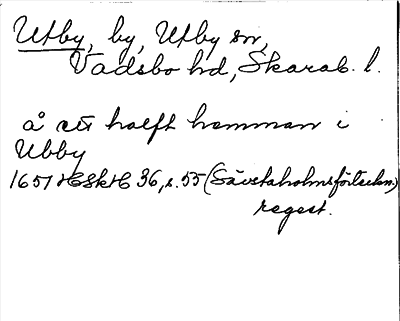 Utby, by, Utby sn,
Vadsbo hd, Skarab. l.
å ett halft hemman i
Ubby
1651 HSkH 36, s. 55 (Sävstaholmsförteckn.)
regest.